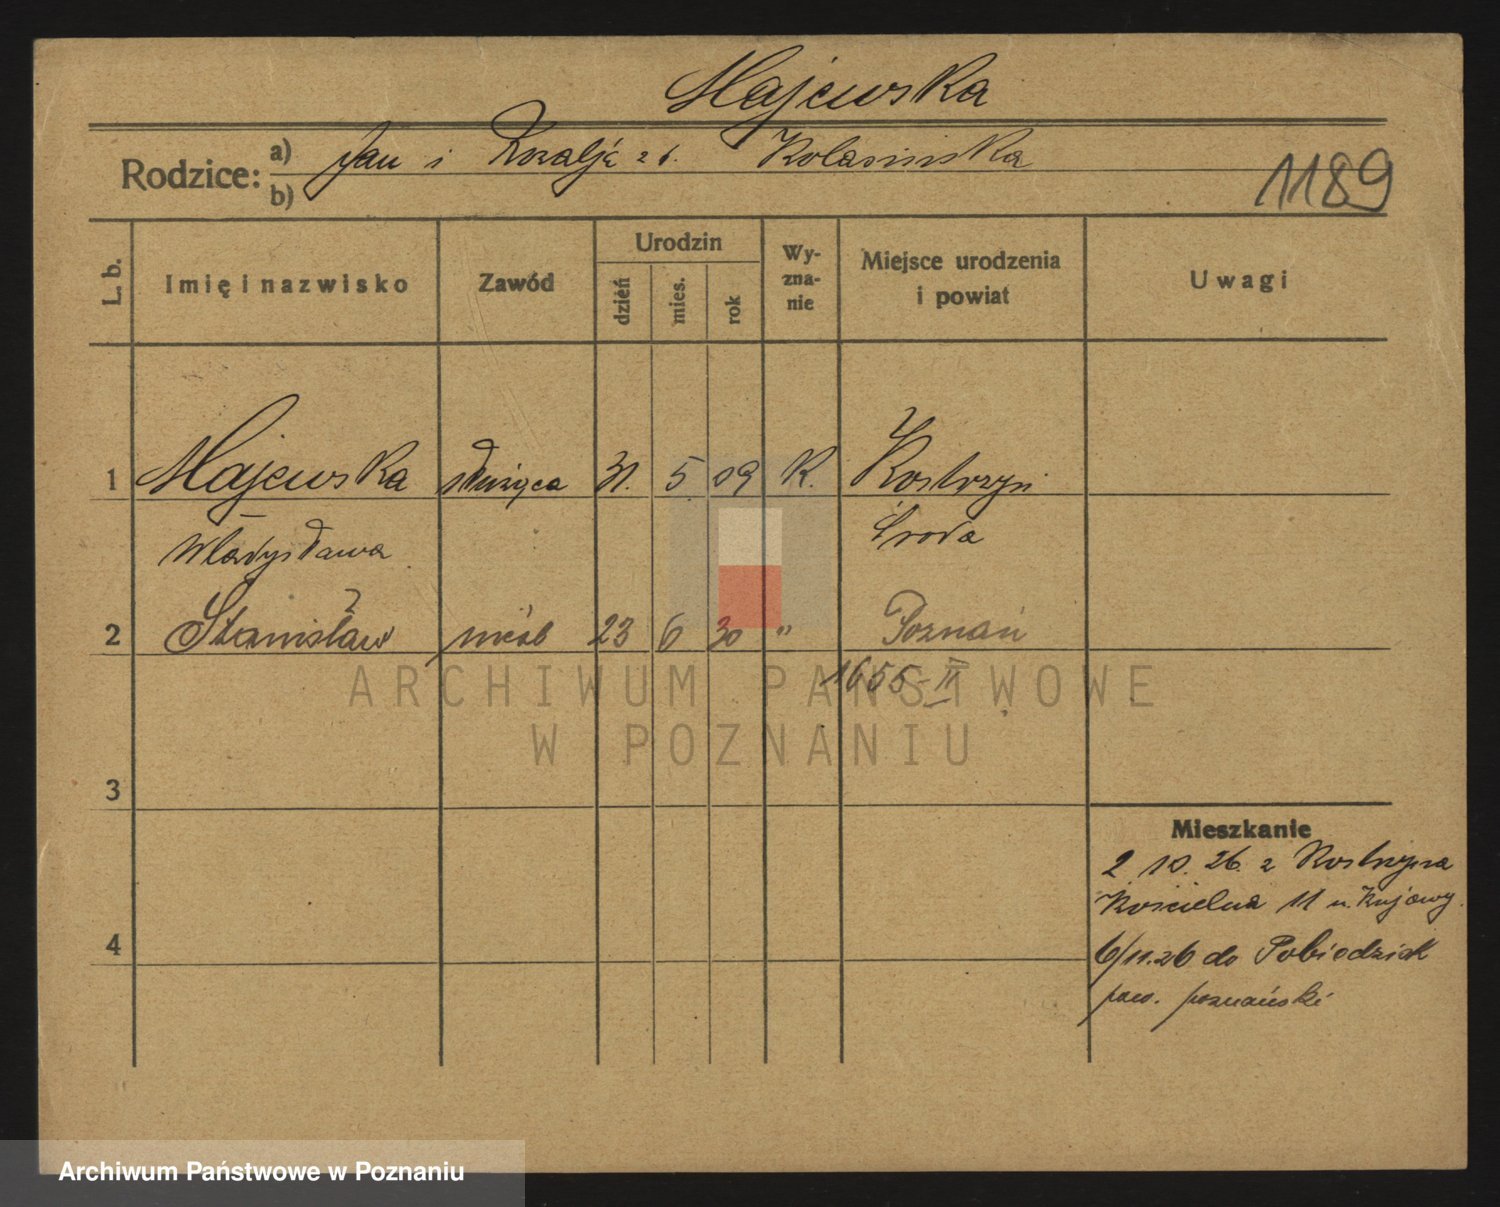 Majewska
Rodzice: a) Jan i Rozalja z d. Kolasinska
b)
1189
L. b.
Imię i nazwisko
Zawód
Urodzin
dzień
mies.
rok
Wy-
zna-
nie
Miejsce urodzenia
i powiat
Uwagi
1 Majewska służąca 31. 5. 09 K. Kostrzyn
Władysława Środa
2 Stanisław nieśl 23 6 30 " Poznań
1655-II
ARCHIWUM PAŃSTWOWE
W POZNANIU
3
Mieszkanie
2 10. 26. z Kostrzyna
Kościelna 11 u. Kujawy.
4
6/11.26 do Pobiedzisk
pow. poznański
Archiwum Państwowe w Poznaniu